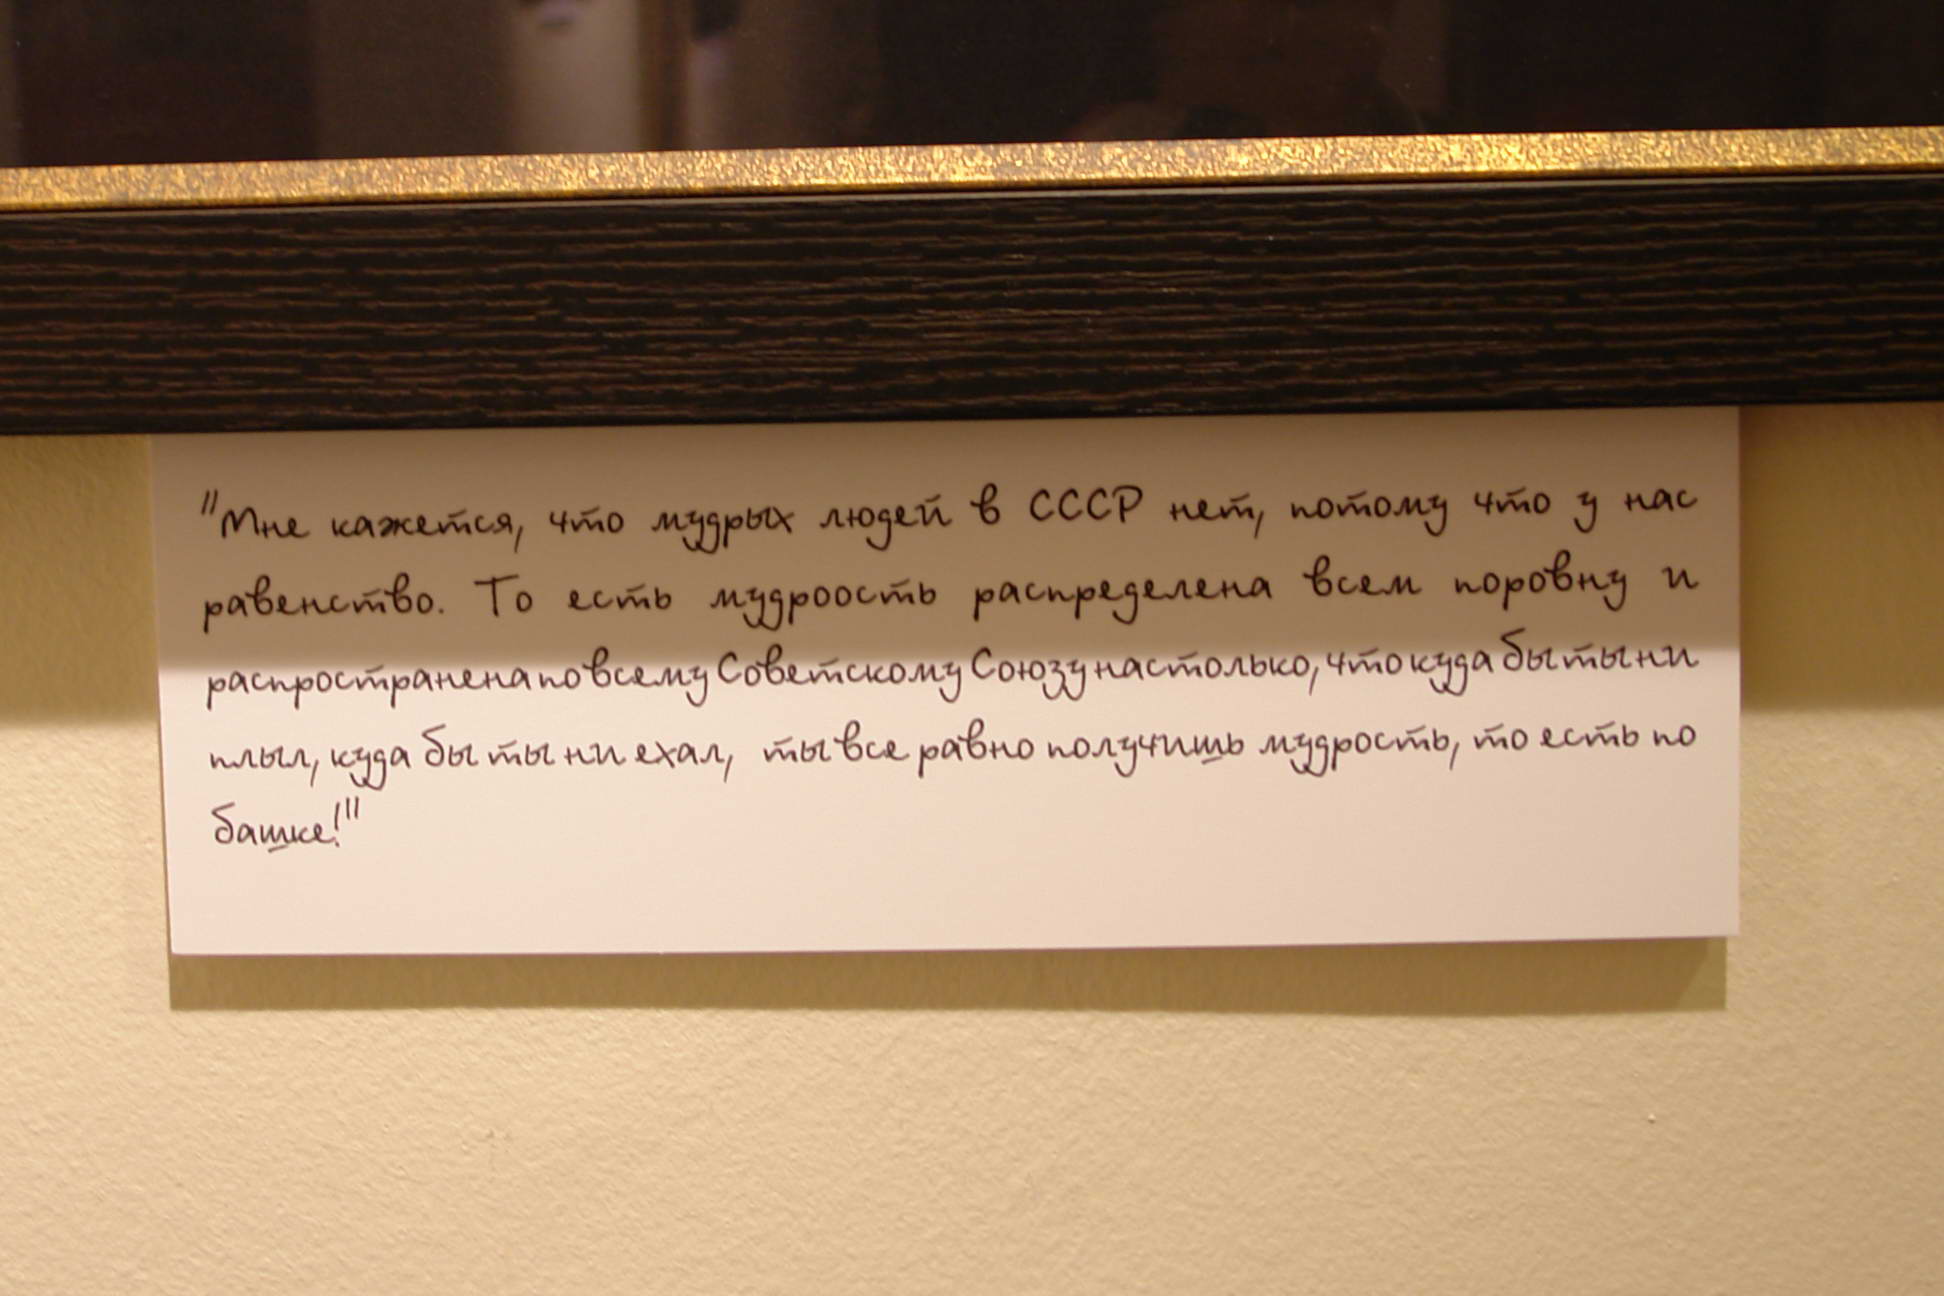 "Мне кажется, что мудрых людей в СССР нет, потому что у нас
равенство. То есть мудроость распределена всем поровну и
распространена по всему Советскому Союзу настолько, что куда бы ты ни
плыл, куда бы ты ни ехал, ты все равно получишь мудрость, то есть по
башке!"